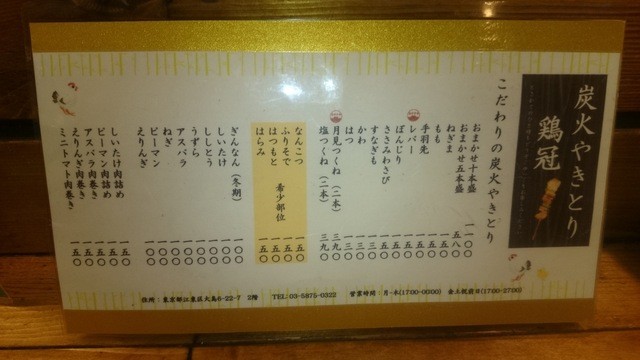 炭火やきとり
鶏冠
こだわりの炭火やきとり
おまかせ十本盛 一一〇〇
おまかせ五本盛 五八〇
ねぎま
もも
手羽先
レバー
ぼんじり
ささみわさび
すなぎも
かわ
はつ
月見つくね（二本） 三九〇
塩つくね（二本） 三九〇
希少部位
なんこつ 一五〇
ふりそで 一五〇
はつもと 一五〇
はらみ 一五〇
ぎんなん（冬期）
しいたけ
ししとう
うずら
アスパラ
ねぎ
ピーマン
えりんぎ
しいたけ肉詰め 一五〇
ピーマン肉詰め 一五〇
アスパラ肉巻き 一五〇
えりんぎ肉巻き 一五〇
ミニトマト肉巻き 一五〇
住所：東京都江東区大島6-22-7 2階 TEL 03-5875-0322 営業時間：月-木(17:00-00:00) 金土祝前日(17:00-27:00)